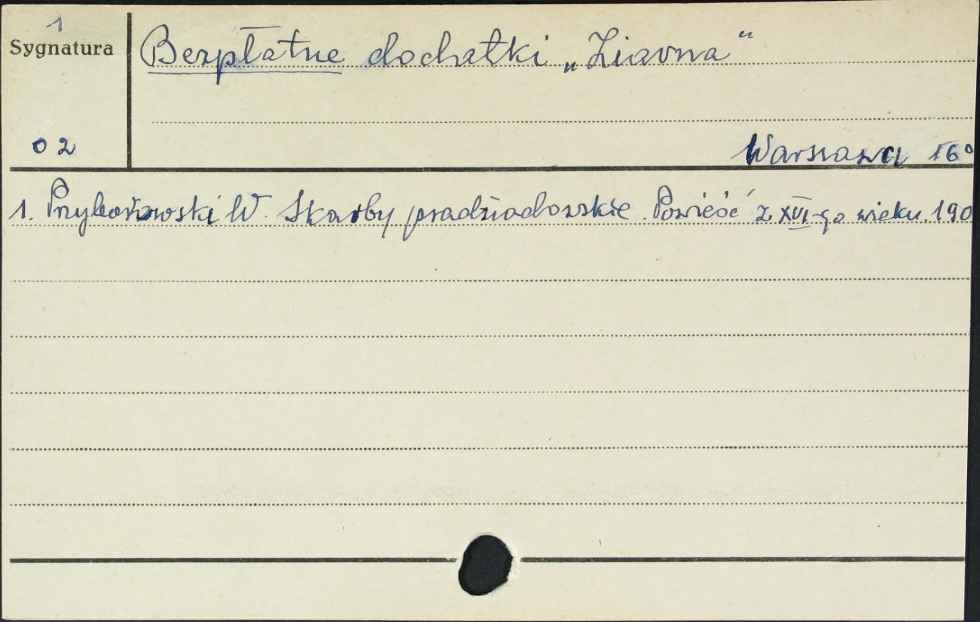 1
Sygnatura
Bezpłatne dodatki „Ziarna"
02
Warszawa 16°
1. Przyborowski W. Skarby pradziadowskie. Powieść z XVI-go wieku. 190